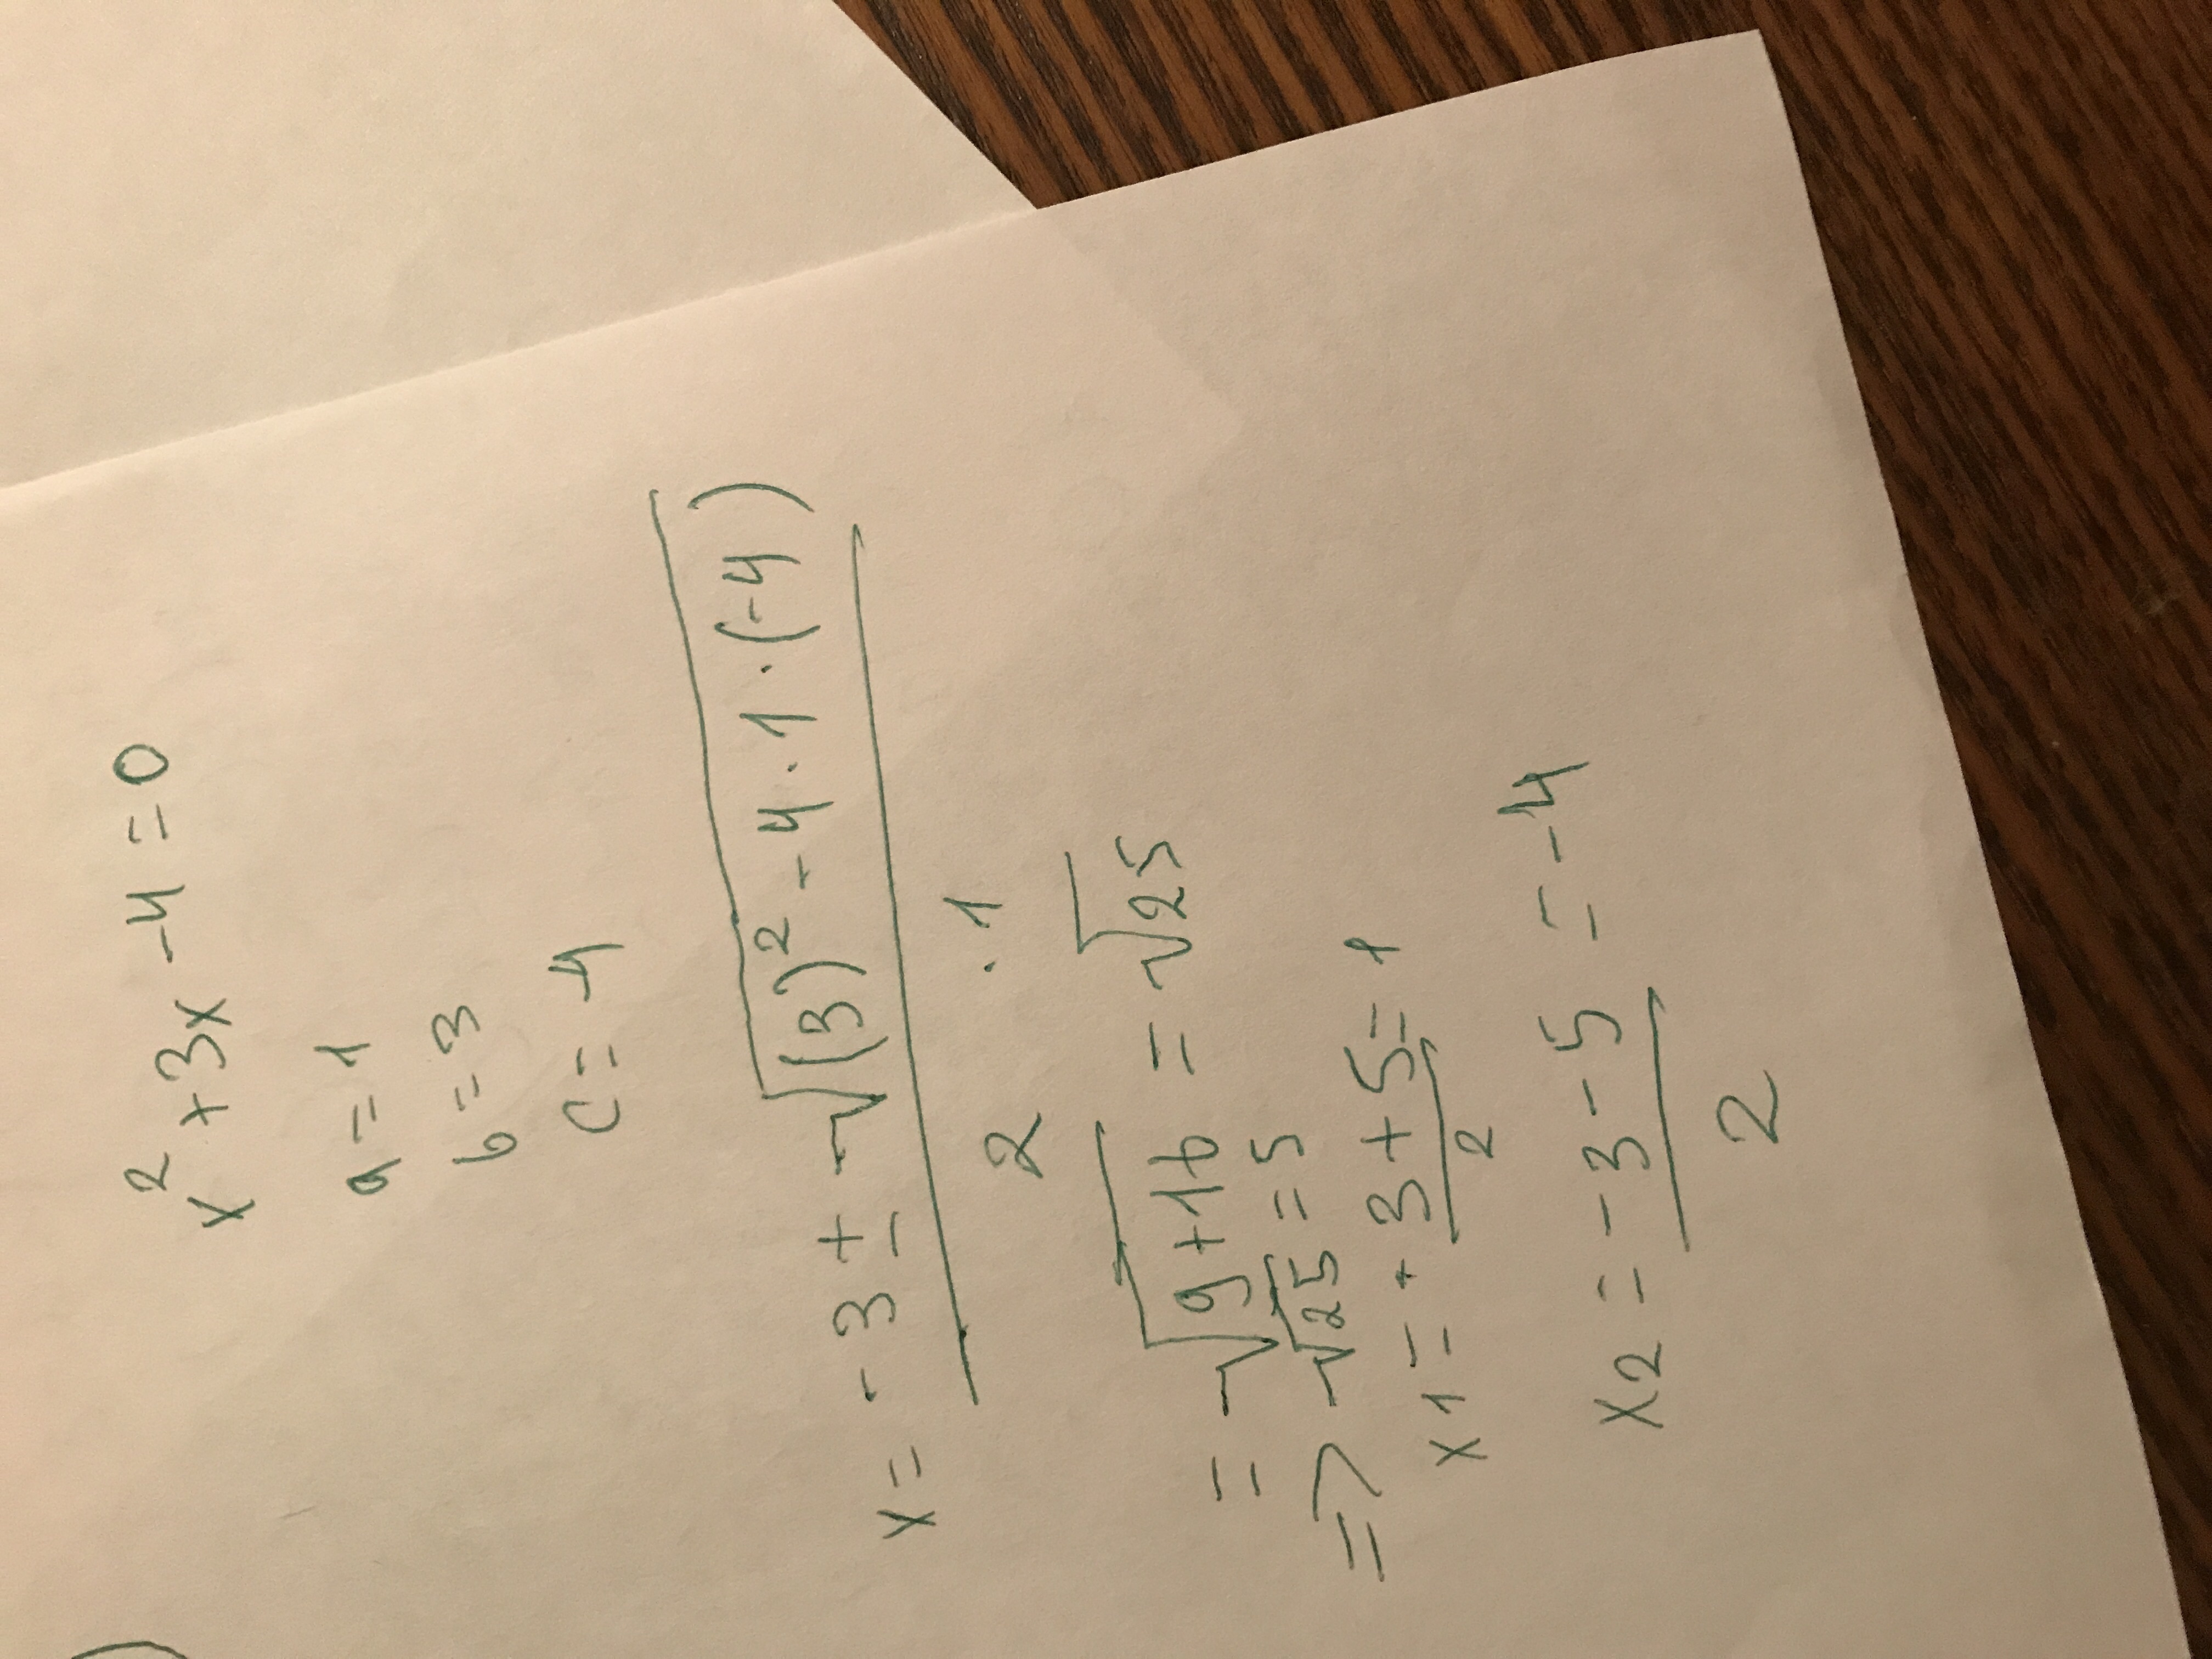 x² + 3x - 4 = 0
a = 1
b = 3
c = -4
x = -3 ± √(3)² - 4 · 1 · (-4)
2 · 1
= √9+16 = √25
=> √25 = 5
x1 = -3 + 5 = 1
2
x2 = -3 - 5 = -4
2